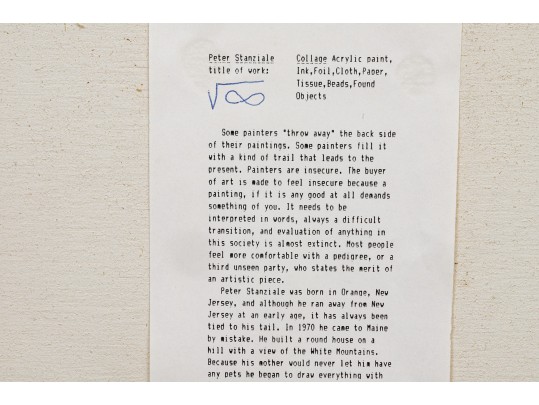 Peter Stanziale
title of work:
√∞
Collage Acrylic paint,
Ink,Foil,Cloth,Paper,
Tissue,Beads,Found
Objects
Some painters "throw away" the back side
of their paintings. Some painters fill it
with a kind of trail that leads to the
present. Painters are insecure. The buyer
of art is made to feel insecure because a
painting, if it is any good at all demands
something of you. It needs to be
interpreted in words, always a difficult
transition, and evaluation of anything in
this society is almost extinct. Most people
feel more comfortable with a pedigree, or a
third unseen party, who states the merit of
an artistic piece.
Peter Stanziale was born in Orange, New
Jersey, and although he ran away from New
Jersey at an early age, it has always been
tied to his tail. In 1970 he came to Maine
by mistake. He built a round house on a
hill with a view of the White Mountains.
Because his mother would never let him have
any pets he began to draw everything with